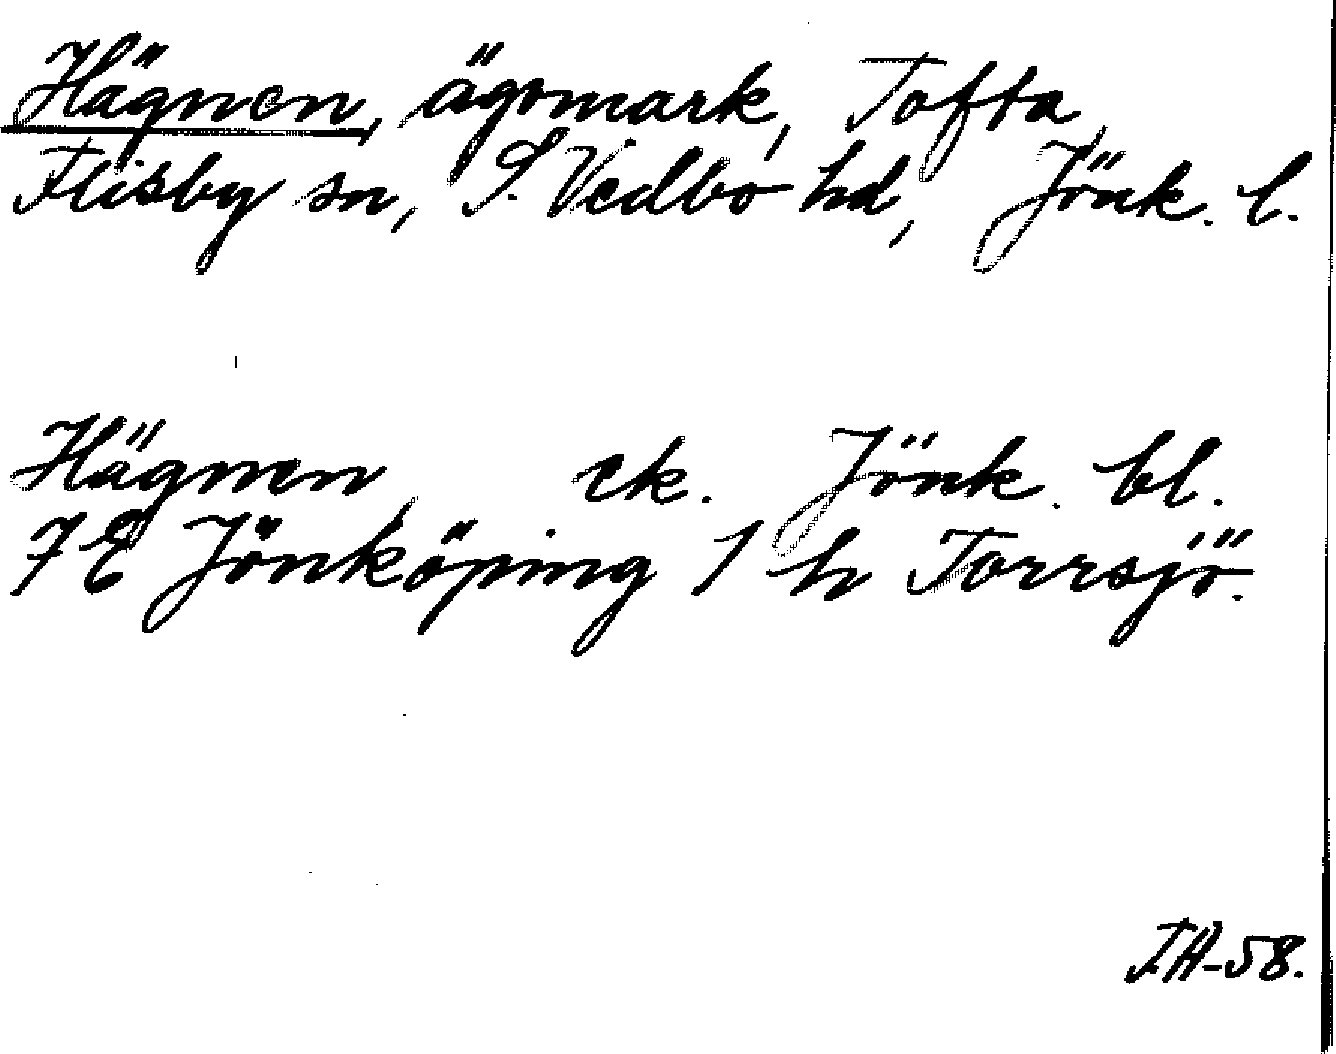 Hägnen, ägomark, Tofta,
Flisby sn, S. Vedbo hd, Jönk. l.
Hägnen, ek. Jönk. bl.
7 E Jönköping 1 h Torrsjö.
FA-58.